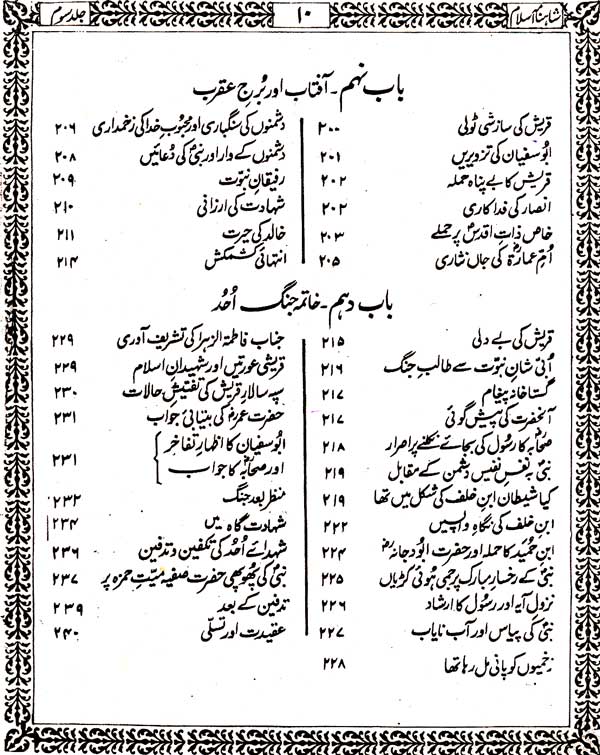 شاہنامہ اسلام
۱۰
جلد سوم
باب نہم - آفتاب اور بُرجِ عقرب
قریش کی سازشی ٹولی ۲۰۰
ابوسفیان کی تزویریں ۲۰۱
قریش کا بے پناہ حملہ ۲۰۲
انصار کی فداکاری ۲۰۲
خاص ذاتِ اقدسؐ پر حملے ۲۰۳
اُمِّ عمارہؓ کی جاں نثاری ۲۰۵
دشمنوں کی سنگباری اور محبوبِ خدا کی زخمداری ۲۰۶
دشمنوں کے وار اور نبیؐ کی دُعائیں ۲۰۸
رفیقانِ نبوّت ۲۰۹
شہادت کی ارزانی ۲۱۰
خالد کی حیرت ۲۱۱
انتہائی کشمکش ۲۱۴
باب دہم - خاتمہ جنگ اُحُد
قریش کی بے دلی ۲۱۵
اُبَی شانِ نبوّت سے طالبِ جنگ ۲۱۶
گستاخانہ پیغام ۲۱۷
آنحضرت کی پیش گوئی ۲۱۷
صحابہؓ کا رسُول کی بجائے نکلنے پر اصرار ۲۱۸
نبیؐ بہ نفسِ نفیس دشمن کے مقابل ۲۱۹
کیا شیطان ابنِ خلف کی شکل میں تھا ۲۱۹
ابنِ خلف کی نگاہِ واپسیں ۲۲۲
ابنِ حُمَید کا حملہ اور حضرت ابُودجانہؓ ۲۲۴
نبیؐ کے رخسارِ مبارک پر جمی ہُوئی کڑیاں ۲۲۵
نزولِ آیہ اور رسُول کا ارشاد ۲۲۶
نبیؐ کی پیاس اور آب نایاب ۲۲۷
زخمیوں کو پانی مل رہا تھا ۲۲۸
جناب فاطمۃ الزہرا کی تشریف آوری ۲۲۹
قریشی عورتیں اور شہیدانِ اسلام ۲۲۹
سپہ سالارِ قریش کی تفتیشِ حالات ۲۳۰
حضرت عمرؓ کی بیتابیٔ جواب ۲۳۱
ابوسفیان کا اظہارِ تفاخر
اور صحابہؓ کا جواب ۲۳۱
منظر بعد جنگ ۲۳۲
شہادت گاہ میں ۲۳۴
شہدائے اُحُد کی تکفین و تدفین ۲۳۶
نبیؐ کی پھوپھی حضرت صفیہ میّتِ حمزہ پر ۲۳۷
تدفین کے بعد ۲۳۹
عقیدت اور تسلّی ۲۴۰